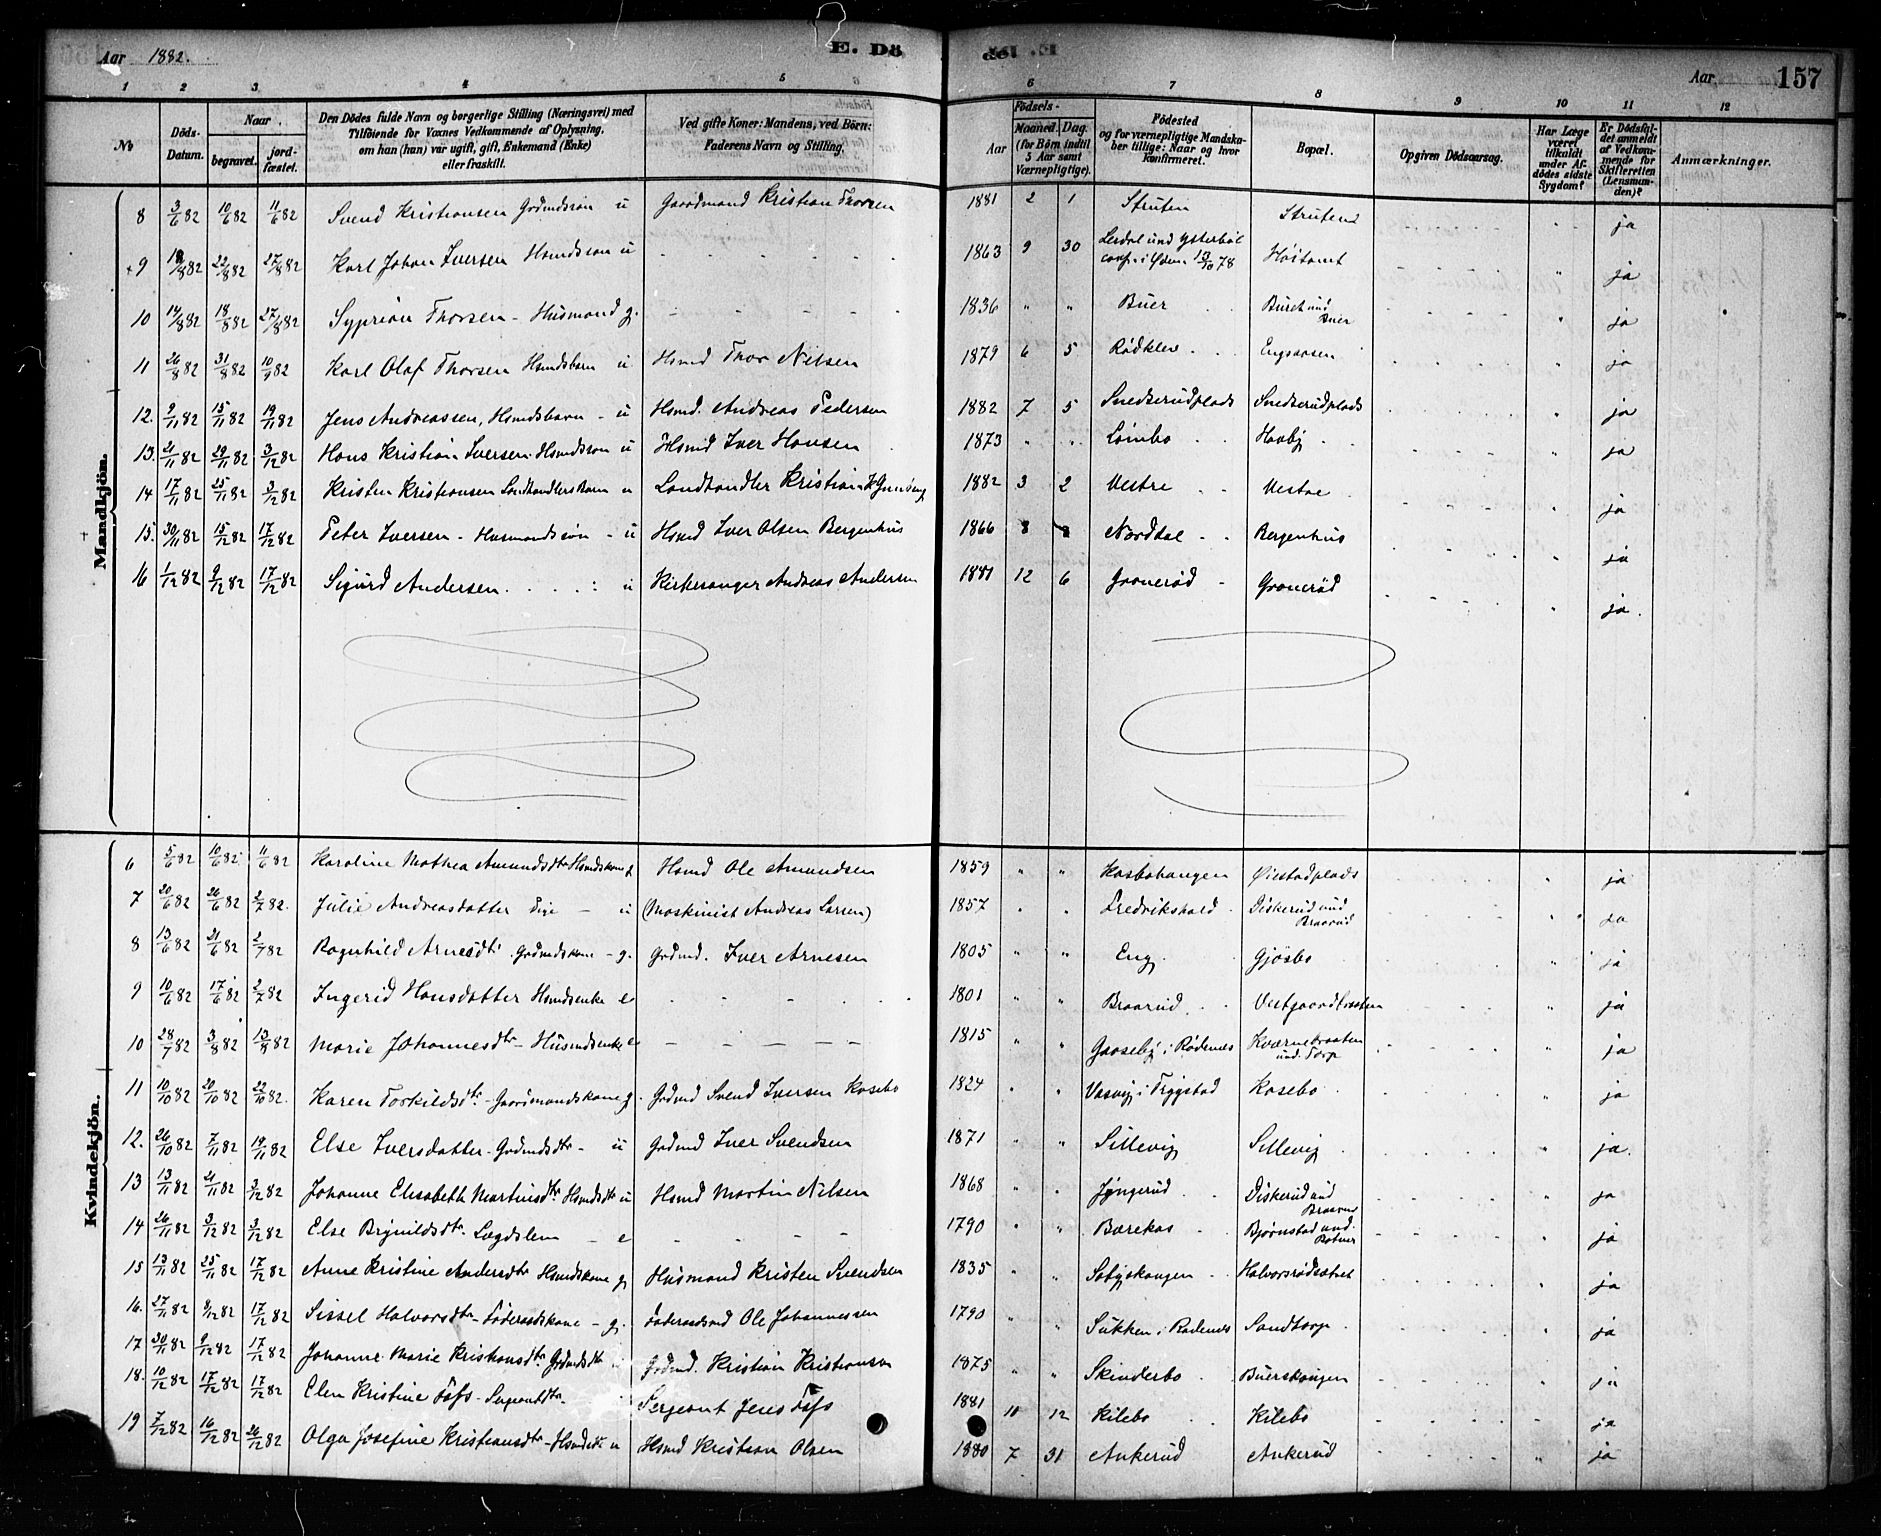 Aar 1882. E. Dö
E. Dö
Aar 157
1 2 3. 4 5 6 7 8 9 10 11 12
No
Döds-Datum.
Naar
begravet.
jord-fæstet.
Den Dödes fulde Navn og borgerlige Stilling (Næringsvei) med
Tilföiende for Voxnes Vedkommende af Oplysning,
om han (hun) var ugift, gift, Enkemand (Enke)
eller fraskilt.
Ved gifte Koner: Mandens, ved Börn:
Faderens Navn og Stilling.
Födsels-
Aar Maaned. Dag.
(for Börn indtil
5 Aar samt
Værnepligtige).
Födested
og for værnepligtige Mandska-
ber tillige: Naar og hvor
konfirmeret.
Bopæl.
Opgiven Dödsaarsag.
Har Læge
været
tilkaldt
under Af-
dödes sidste
Sygdom?
Er Dödsfal-
det anmeldt
af Vedkom-
mende for
Skifteretten
(Lensman-
den)?
Anmærkninger.
Mandkjön.
8 3/6 82 10/6 82 11/6 82 Svend Kristiansen Grdmdssøn u Gaardmand Kristian Thorsen 1881 2 1 Struten Struten ja
+9 18/8 82 22/8 82 27/8 82 Karl Johan Iversen Hsmdssøn u 1863 9 30 Lerdal und Ysterbøl
conf. i 13/10 78 Høitomt ja
10 14/8 82 18/8 82 27/8 82 Syprian Thorsen - Husmand g. 1836 " " Buer und
Buer ja
11 26/8 82 31/8 82 10/9 82 Karl Olaf Thorsen Hsmdsbarn u Hsmd Thor Nilsen 1879 6 5 Rødklev ja
12. 9/11 82 15/11 82 19/11 82 Jens Andreassen, Hsmdsbarn - u Hsmd. Andreas Pedersen 1882 7 5 Snedserudplads Snedserudplads ja
13. 21/11 82 29/11 82 3/12 82 Hans Kristian Iversen Hsmdssøn u Hsmd Iver Hansen 1873 " " Lømbo ja
14 17/11 82 25/11 82 3/12 82 Kristen Kristiansen Landhandlersbarn u Landhandler Kristian 1882 3 2 Vestre Vestre ja
15. 30/11 82 15/12 82 17/12 82 Peter Iversen - Husmandssøn - u Hsmd Iver Olsen Bergenhus 1866 8 Nordtal Bergenhus ja
16 1/12 82 9/12 82 17/12 82 Sigurd Andersen u Kirkesanger Andreas Andersen 1881 12 6 Gronerød Gronerød ja.
Kvindekjön.
6 5/6 82 10/6 82 11/6 82 Karoline Mathea Amundsdtr Hsmdskone g Hsmd Ole Amundsen 1859 " " Øiestadplads ja
7 20/6 82 26/6 82 2/7 82. Julie Andreasdatter Pige - u (Maskinist Andreas Larsen) 1857 " " Fredrikshald Diskerud und
Braarud ja
8 13/6 82 21/6 82 2/7 82 Ragnhild Arnesdtr. Grdmdskone - g. Grdmd. Iver Arnesen 1805 " " Eng Gjøsbo ja
9 10/6 82 17/6 82 2/7 82 Ingerid Hansdatter Hsmdsenke e 1801 " " Braarud Vestgaardbraaten ja
10 28/7 82 3/8 82 13/8 82 Marie Johannesdtr - Husmdsenke e 1815 " " Gaaseby i Rødenæs Kværnebraaten
und. Torp ja
11 10/10 82 20/10 82 22/10 82. Karen Torkildsdtr. - Gaardmandskone g. Grdmd Svend Iversen Kosebo 1824 " " i Trygstad Kosebo ja
12. 26/10 82 7/11 82 19/11 82 Else Iversdatter - Grdmdsdtr - u Grdmd Iver Svendsen 1871 " " Sillevig Sillevig ja.
13 13/11 82 21/11 82 3/12 82 Johanne Elisabeth Martinsdtr Hsmdsdtr u Hsmd Martin Nilsen 1868 " " Jyngerud Diskerud und
Braarud ja
14 26/11 82 3/12 82 3/12 82 Else Brynildsdtr. Lægdslem - e 1790 " " Barekas Bjørnstad und. ja
15 13/11 82 25/11 82 17/12 82 Anne Kristine Andersdtr Hsmdskone g Husmand Kristen Svendsen 1835 " " Halvorsrødsætret ja
16. 27/11 82 9/12 82 17/12 82 Sissel Halvorsdtr - Føderaadskone - g. Føderaadsmd Ole Johannessen 1790 " " Sukken i Rødenæs Sandtorp ja
17 30/11 82 9/12 82 17/12 82 Johanne Marie Kristiansdtr Grdmdsdtr u Grdmd. Kristian Kristiansen 1875 " " Skinderbo Buerskogen ja
18. 10/12 82 17/12 82 17/12 82 Elen Kristine Foss - Sergeantdtr. Sergeant Jens Foss 1881 10 12 Kilebo Kilebo ja
19 7/12 82 16/12 82 26/12 82 Olga Josefine Kristiansdtr - Hsmdsdtr u Hsmd Kristian Olsen 1880 7 31 Ankerud Ankerud ja